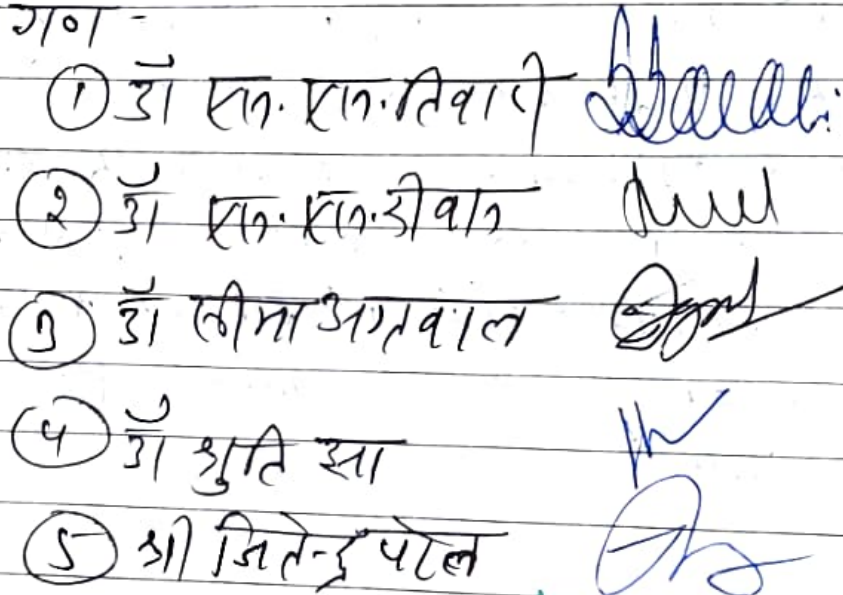 गण -
① डॉ एन. एन. तिवारी
② डॉ एन. एन. दीवान
③ डॉ सीमा अग्रवाल
④ डॉ श्रुति झा
⑤ श्री जितेन्द्र पटेल